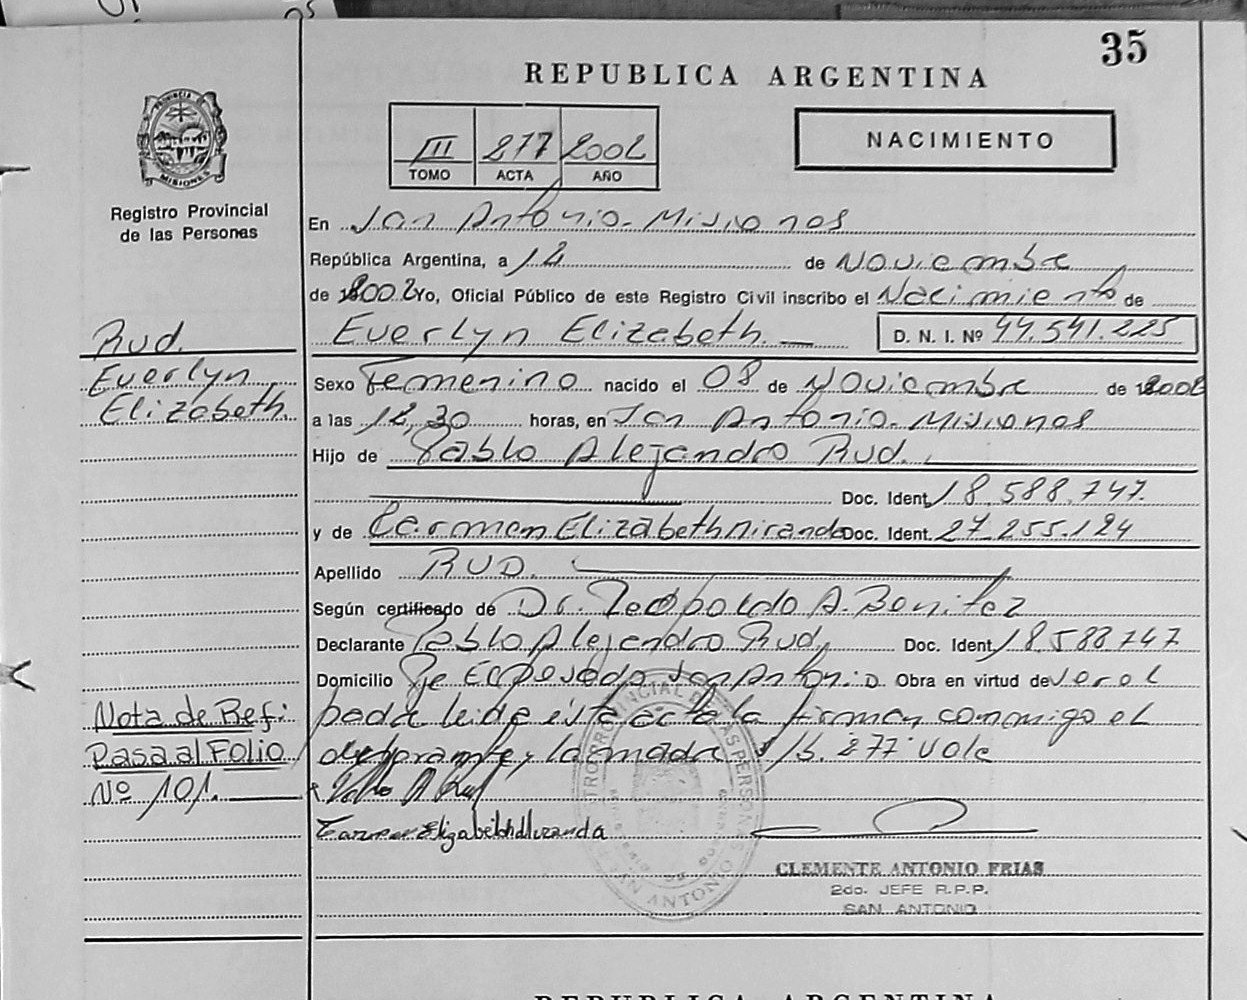 35
REPUBLICA ARGENTINA
PROVINCIA DE
MISIONES
Registro Provincial
de las Personas
III 277 2002
TOMO ACTA AÑO
NACIMIENTO
En San Antonio - Misiones
República Argentina, a 12 de Noviembre
de 2002 Yo, Oficial Público de este Registro Civil inscribo el Nacimiento de
Rud. Everlyn Elizabeth. D. N. I. Nº 44.541.225
Everlyn Sexo Femenino nacido el 08 de Noviembre de 2002
Elizabeth. a las 12,30 horas, en San Antonio - Misiones
Hijo de Pablo Alejandro Rud.
Doc. Ident. 18.588.747.
y de Carmen Elizabeth Miranda Doc. Ident. 27.255.124
Apellido RUD.
Según certificado de Dr. Leopoldo A. Benitez
Declarante Pablo Alejandro Rud, Doc. Ident. 18.588747
Domicilio San Antonio Obra en virtud de
Nota de Ref: leida ésta acta la firman conmigo el
Pasa al Folio y la madre S/b. 277 Vale
Nº 101.
Carmen Elizabeth Miranda
CLEMENTE ANTONIO FRIAS
2do. JEFE R.P.P.
SAN ANTONIO
REPUBLICA ARGENTINA